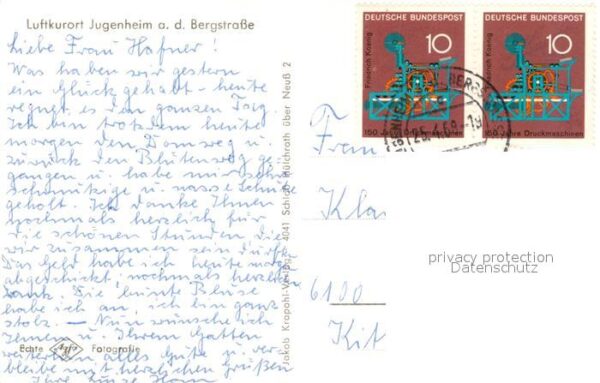 Luftkurort Jugenheim a. d. Bergstraße
Liebe Frau Hafner!
Was haben wir gestern
ein Glück gehabt - heute
regnet es den ganzen Tag
Ich bin trotzdem heute
morgen den Domweg u.
zurück den Blütenweg ge-
gangen u. habe mir schön
schmutzige u. nasse Schuhe
geholt. Ich danke Ihnen
nochmals herzlich für
die schönen Stunden die
wir zusammen sein durften.
Das Geld habe ich heute morgen
abgeschickt, nochmals herzlichen
Dank. Die bunte Bluse
habe ich an, ich bin ganz
stolz. - Nun wünsche ich
Ihnen u. Ihrem Gatten
weiterhin alles Gute u. ver-
bleibe mit herzlichen Grüßen
Ihre
Echte Agfa Fotografie
Jakob Krapohl-Verlag, 4041 Schloß Hülchrath über Neuß 2
DEUTSCHE BUNDESPOST
10
Friedrich Koenig
150 Jahre Druckmaschinen
DEUTSCHE BUNDESPOST
10
Friedrich Koenig
150 Jahre Druckmaschinen
Frau
Kla
6100
Kit
privacy protection
Datenschutz